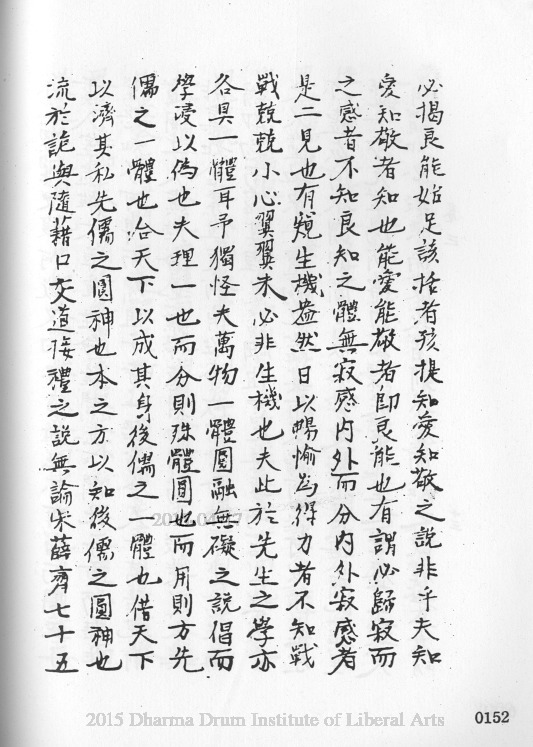 必揭良能始足該括者孩提知愛知敬之說非乎夫知
愛知敬者知也能愛能敬者即良能也有謂必歸寂而
之感者不知良知之體無寂感內外而分內外寂感者
是二見也有覬生機盎然日以暢愉為得力者不知戰
戰兢兢小心翼翼未必非生機也夫此於先生之學亦
各具一體耳予獨怪夫萬物一體圓融無礙之說倡而
學浸以偽也夫理一也而分則殊體圓也而用則方先
儒之一體也合天下以成其身後儒之一體也借天下
以濟其私先儒之圓神也本之方以知後儒之圓神也
流於詭與隨藉口交道接禮之說無論宋薛齊七十五
0152
2015 Dharma Drum Institute of Liberal Arts